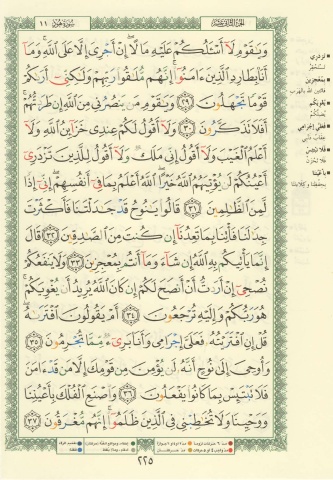 سُورَةُ هُودٍ ١١
الجزء الثاني عشر
وَيَٰقَوْمِ لَآ أَسْـَٔلُكُمْ عَلَيْهِ مَالًا ۖ إِنْ أَجْرِىَ إِلَّا عَلَى ٱللَّهِ ۚ وَمَآ
أَنَا۠ بِطَارِدِ ٱلَّذِينَ ءَامَنُوٓا۟ ۚ إِنَّهُم مُّلَٰقُوا۟ رَبِّهِمْ وَلَٰكِنِّىٓ أَرَىٰكُمْ
قَوْمًا تَجْهَلُونَ ٢٩ وَيَٰقَوْمِ مَن يَنصُرُنِى مِنَ ٱللَّهِ إِن طَرَدتُّهُمْ ۚ
أَفَلَا تَذَكَّرُونَ ٣٠ وَلَآ أَقُولُ لَكُمْ عِندِى خَزَآئِنُ ٱللَّهِ وَلَآ
أَعْلَمُ ٱلْغَيْبَ وَلَآ أَقُولُ إِنِّى مَلَكٌ وَلَآ أَقُولُ لِلَّذِينَ تَزْدَرِىٓ
أَعْيُنُكُمْ لَن يُؤْتِيَهُمُ ٱللَّهُ خَيْرًا ۖ ٱللَّهُ أَعْلَمُ بِمَا فِىٓ أَنفُسِهِمْ ۖ إِنِّىٓ إِذًا
لَّمِنَ ٱلظَّٰلِمِينَ ٣١ قَالُوا۟ يَٰنُوحُ قَدْ جَٰدَلْتَنَا فَأَكْثَرْتَ
جِدَٰلَنَا فَأْتِنَا بِمَا تَعِدُنَآ إِن كُنتَ مِنَ ٱلصَّٰدِقِينَ ٣٢ قَالَ
إِنَّمَا يَأْتِيكُم بِهِ ٱللَّهُ إِن شَآءَ وَمَآ أَنتُم بِمُعْجِزِينَ ٣٣ وَلَا يَنفَعُكُمْ
نُصْحِىٓ إِنْ أَرَدتُّ أَنْ أَنصَحَ لَكُمْ إِن كَانَ ٱللَّهُ يُرِيدُ أَن يُغْوِيَكُمْ ۚ
هُوَ رَبُّكُمْ وَإِلَيْهِ تُرْجَعُونَ ٣٤ أَمْ يَقُولُونَ ٱفْتَرَىٰهُ ۖ
قُلْ إِنِ ٱفْتَرَيْتُهُۥ فَعَلَىَّ إِجْرَامِى وَأَنَا۠ بَرِىٓءٌ مِّمَّا تُجْرِمُونَ ٣٥
وَأُوحِىَ إِلَىٰ نُوحٍ أَنَّهُۥ لَن يُؤْمِنَ مِن قَوْمِكَ إِلَّا مَن قَدْ ءَامَنَ
فَلَا تَبْتَئِسْ بِمَا كَانُوا۟ يَفْعَلُونَ ٣٦ وَٱصْنَعِ ٱلْفُلْكَ بِأَعْيُنِنَا
وَوَحْيِنَا وَلَا تُخَٰطِبْنِى فِى ٱلَّذِينَ ظَلَمُوٓا۟ ۚ إِنَّهُم مُّغْرَقُونَ ٣٧
تَزْدَرِي
تَسْتَحْقِرُ
بِمُعْجِزِينَ
فَائِتِينَ اللهَ بِالهَرَبِ
يُغْوِيَكُمْ
يُضِلَّكُمْ
فَعَلَيَّ إِجْرَامِي
عِقَابُ ذَنْبِي
فَلَا تَبْتَئِسْ
فَلَا تَحْزَنْ
بِأَعْيُنِنَا
بِحِفْظِنَا وَكِلَاءَتِنَا
٢٢٥